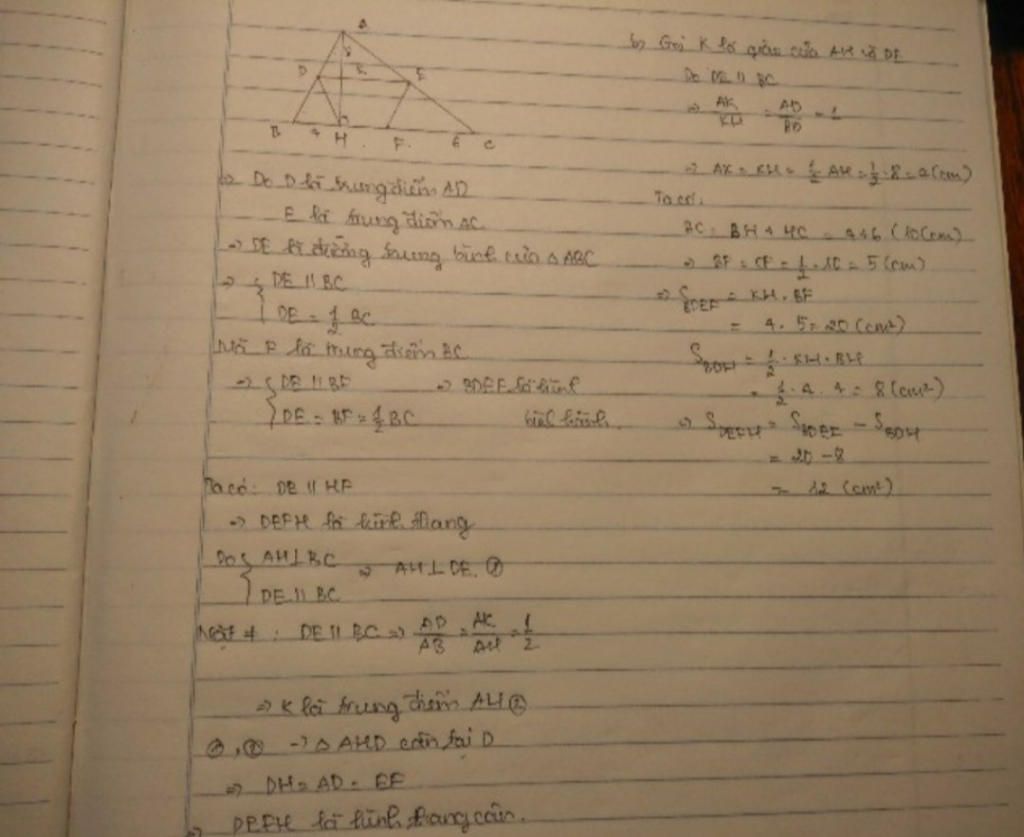 A
8
D K E
B 4 H F 6 C
a) Do D là trung điểm AD
E là trung điểm AC
=> DE là đường trung bình của △ ABC
=> { DE // BC
DE = 1/2 BC
Mà F là trung điểm BC
=> { DE // BF => BDEF là hình
DE = BF = 1/2 BC bình hành.
Ta có: DE // HF
=> DEFH là hình thang
Do { AH ⊥ BC => AH ⊥ DE ①
DE // BC
: DE // BC => AD/AB = AK/AH = 1/2
=> K là trung điểm AH ②
①, ② -> △ AHD cân tại D
=> DH = AD = EF
=> DEFH là hình thang cân.
b) Gọi K là giao của AH và DE
Do DE // BC
=> AK/KH = AD/BD = 1
=> AK = KH = 1/2 AH = 1/2 . 8 = 4 (cm)
Ta có:
BC = BH + HC = 4+6 (10(cm)
=> BF = CF = 1/2 . 10 = 5 (cm)
=> S BDEF = KH . BF
= 4 . 5 = 20 (cm²)
S BDH = 1/2 . KH . BH
= 1/2 . 4 . 4 = 8 (cm²)
=> S DEFH = S BDEF - S BDH
= 20 - 8
= 12 (cm²)